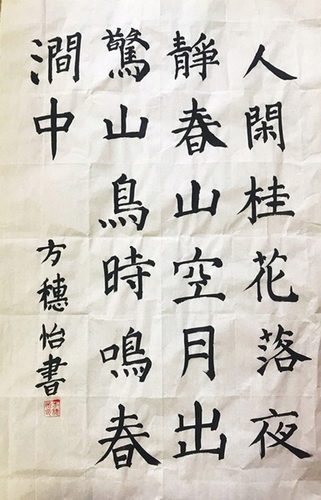 人閑桂花落夜
靜春山空月出
驚山鳥時鳴春
澗中
方穗怡書